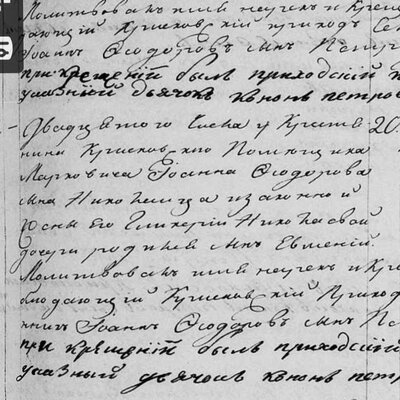 Молитвовалъ имя нарекъ и Крес
дающій Крисковскій приходъ Свя
Іоаннъ Ѳеодоровъ сынъ Петр
при крещеній былъ приходскій
указный дьячокъ кононъ петров
Двадцятого Числа у Крестя 20.
нина Крисковского Помѣщика
Марковича Іоанна Ѳеодорова
сына Николенка и законной
жены Его Гликеріи Николаевой
дочери родился сынъ Евменій.
Молитвовалъ имя нарекъ и Кре
блюдающій Крисковскій Приход
нникъ Іоаннъ Ѳеодоровъ сынъ Пе
при крещеній былъ приходскій
указный дьячокъ кононъ петр